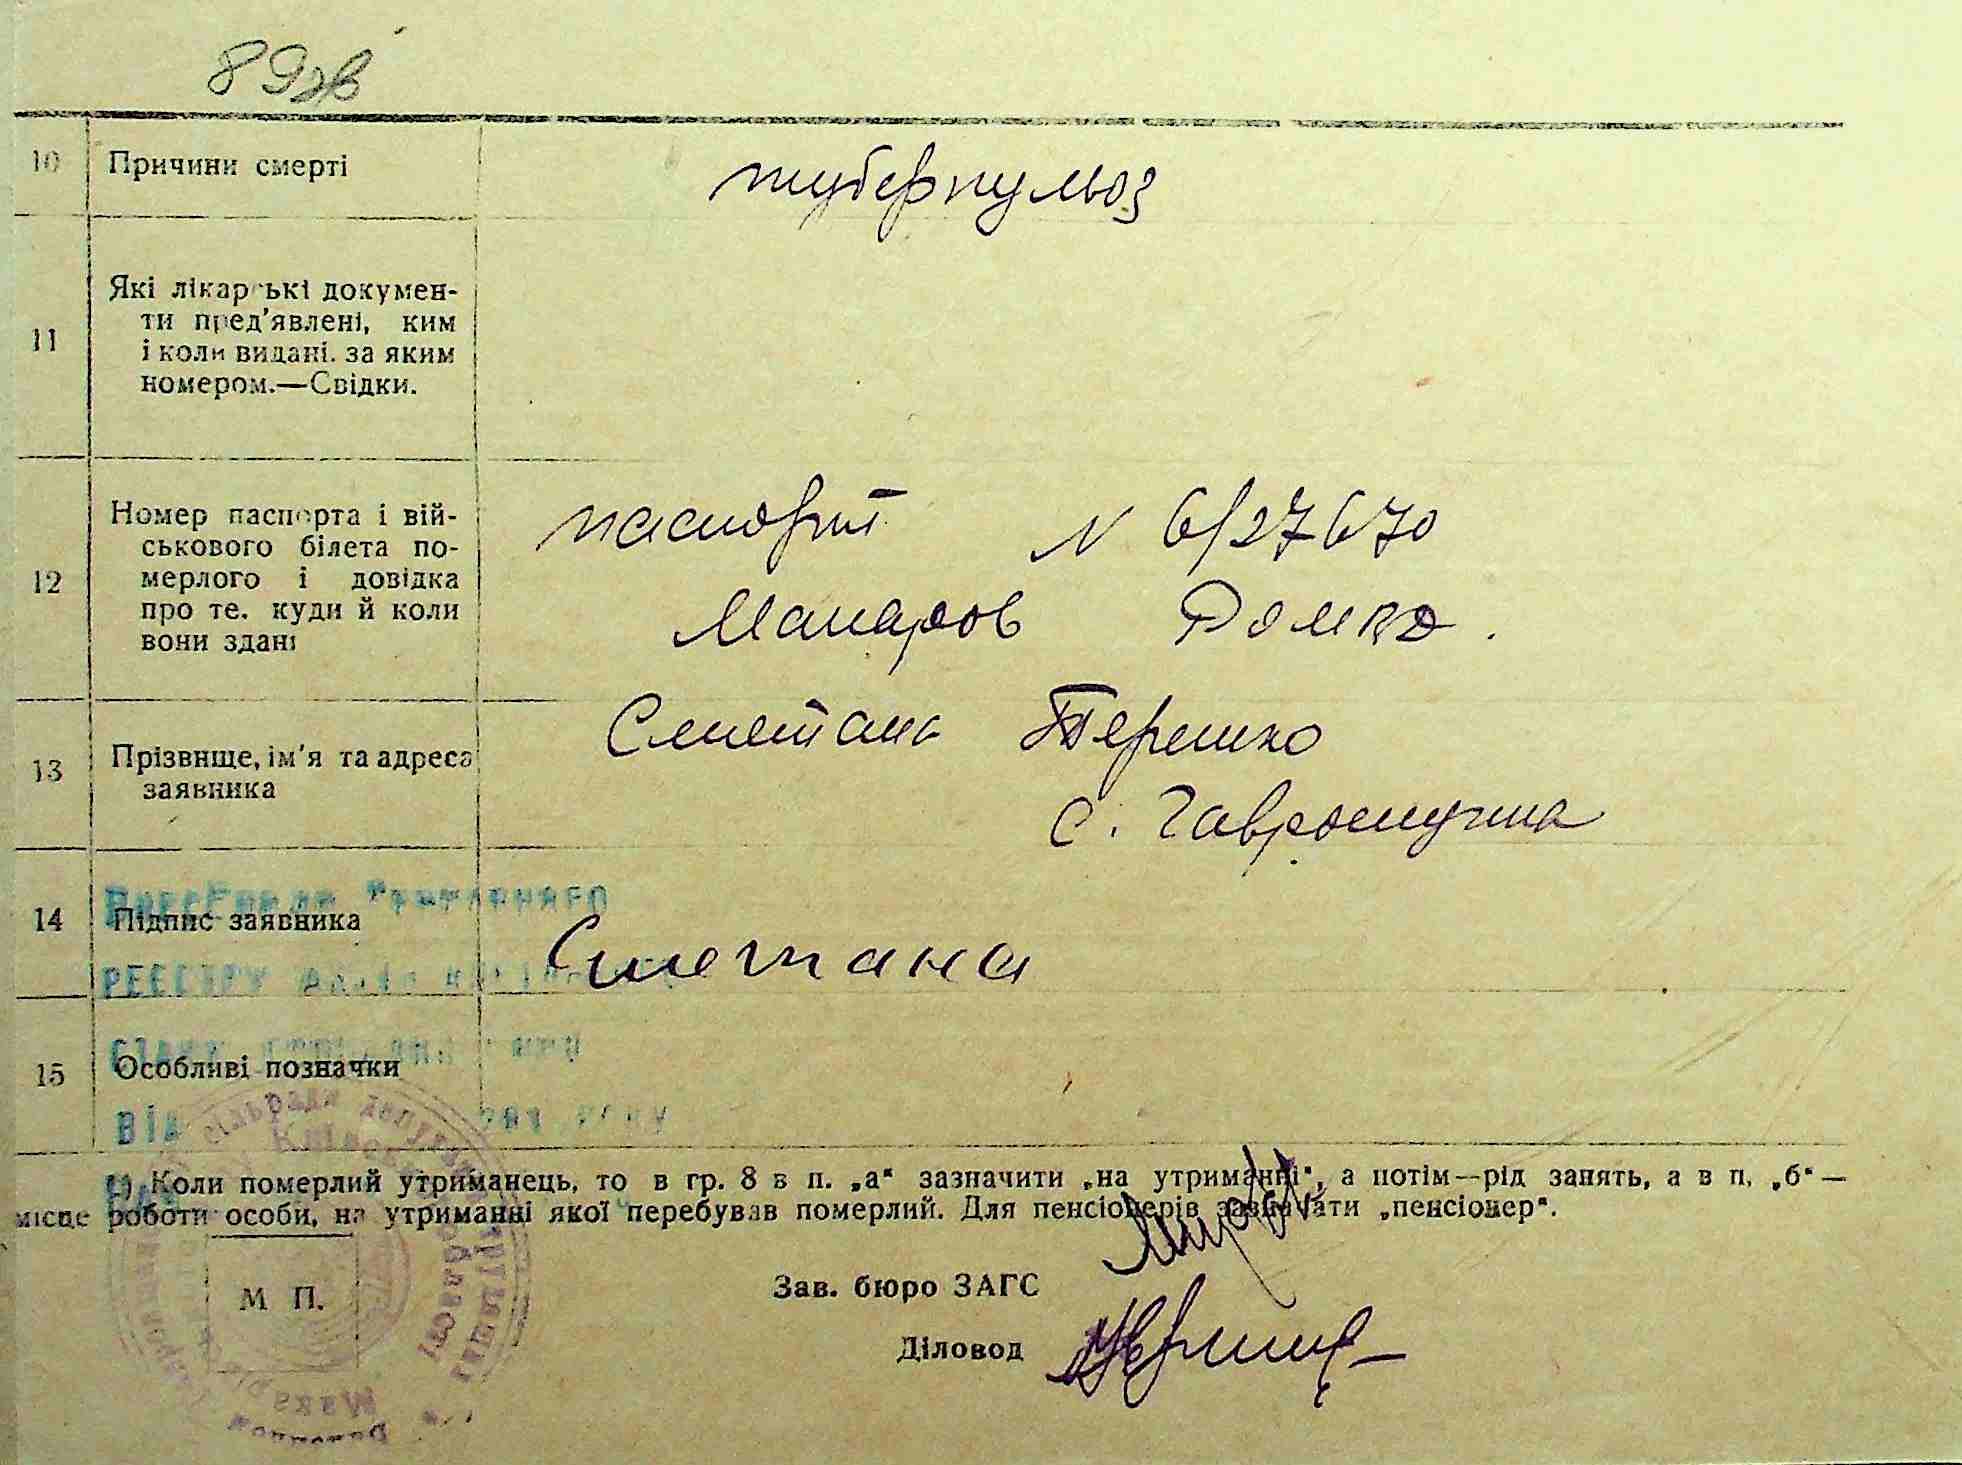 89зв
10 Причини смерті туберкульоз
11 Які лікарські докумен-
ти пред'явлені, ким
і коли видані. за яким
номером.—Свідки.
12 Номер паспорта і вій-
ськового білета по-
мерлого і довідка
про те. куди й коли
вони здані
паспорт N 6/27670
Макаров
13 Прізвище, ім'я та адреса
заявника
Сметана Терешко
с. Гавронщина
14 Підпис заявника Сметана
РЕЄСТРУ
15 Особливі позначки
ВІД
¹) Коли померлий утриманець, то в гр. 8 в п. „а“ зазначити „на утриманні“, а потім—рід занять, а в п, „б“—
місце роботи особи, на утриманні якої перебував померлий. Для пенсіонерів зазначати „пенсіонер“.
М П.
Зав. бюро ЗАГС
Діловод